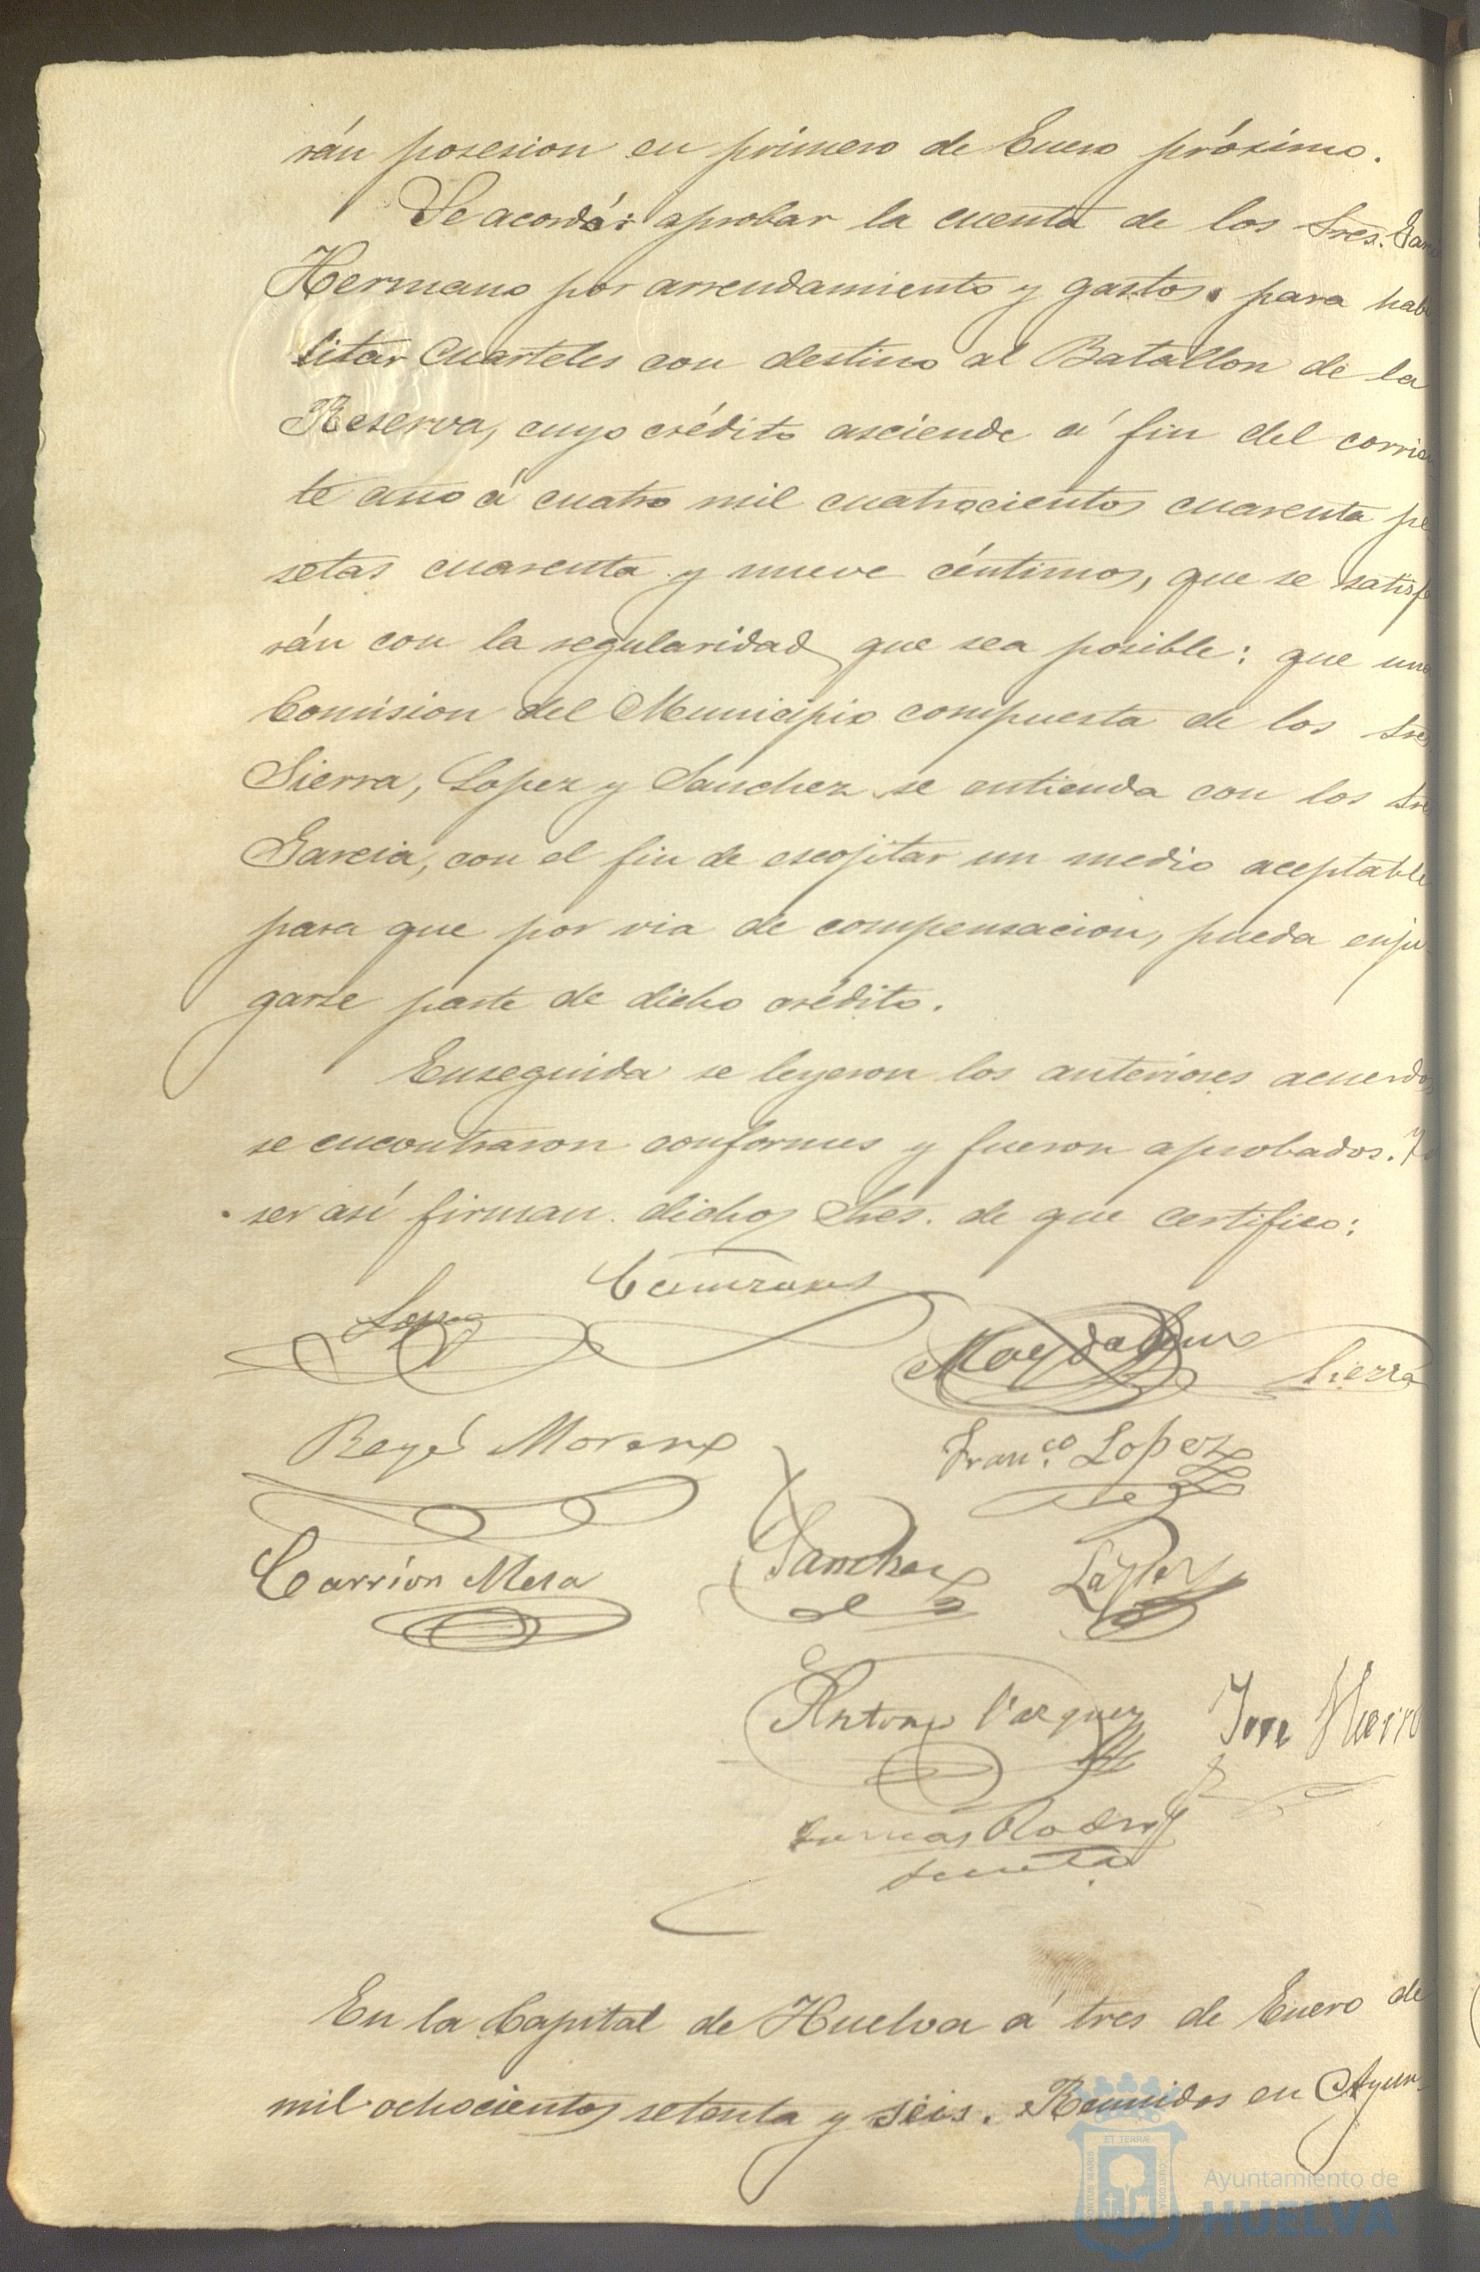 rán posesion en primero de Enero próximo.
Se acordó: aprobar la cuenta de los Sres. Gar
Hermano por arrendamiento y gastos para habi
litar Cuarteles con destino al Batallon de la
Reserva, cuyo crédito asciende á fin del corrien
te año á cuatro mil cuatrocientos cuarenta pe
setas cuarenta y nueve céntimos, que se satisfa
rán con la regularidad que sea posible: que una
Comision del Municipio compuesta de los Sres
Sierra, Lopez y Sanchez se entienda con los Sres
Garcia, con el fin de escojitar un medio aceptable
para que por via de compensacion, pueda enju
garse parte de dicho crédito.
Enseguida se leyeron los anteriores acuerdos
se encontraron conformes y fueron aprobados. Y
ser así firman dichos Sres. de que certifico:
Sierra
Reyes Moreno
Fran.co Lopez
Carrion Mesa
Sanchez
Antonio Vazquez
Jose Hierro
En la Capital de Huelva á tres de Enero de
mil ochocientos setenta y seis. Reunidos en Ayun-
ET TERRÆ
Ayuntamiento de
HUELVA